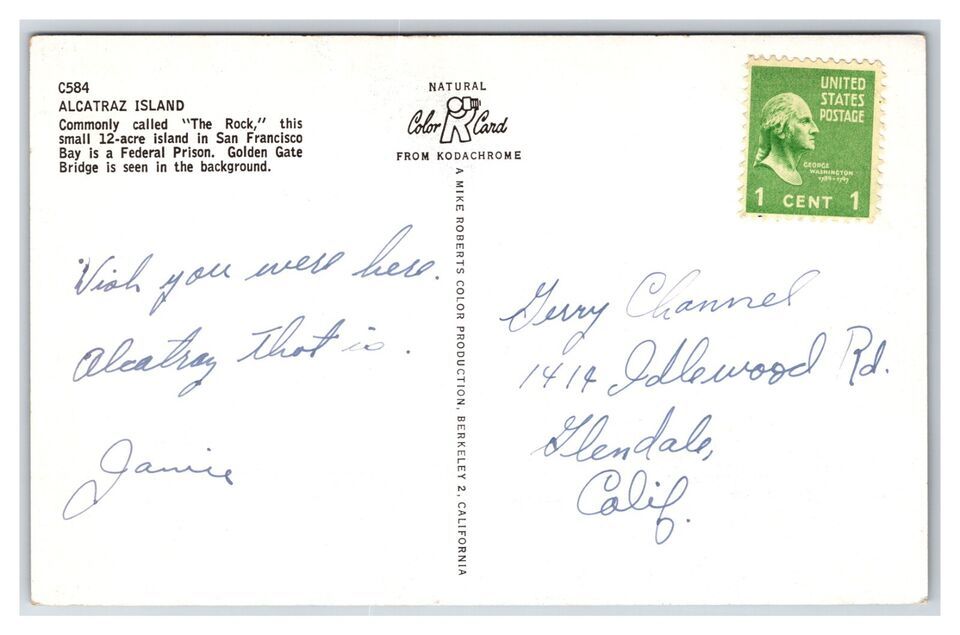 C584
ALCATRAZ ISLAND
Commonly called "The Rock," this
small 12-acre island in San Francisco
Bay is a Federal Prison. Golden Gate
Bridge is seen in the background.
NATURAL
Color Card
FROM KODACHROME
A MIKE ROBERTS COLOR PRODUCTION, BERKELEY 2, CALIFORNIA
UNITED
STATES
POSTAGE
GEORGE
WASHINGTON
1789-1797
1 CENT 1
Wish you were here.
Alcatraz that is.
Janice
Gerry Channel
1414 Idlewood Rd.
Glendale,
Calif.